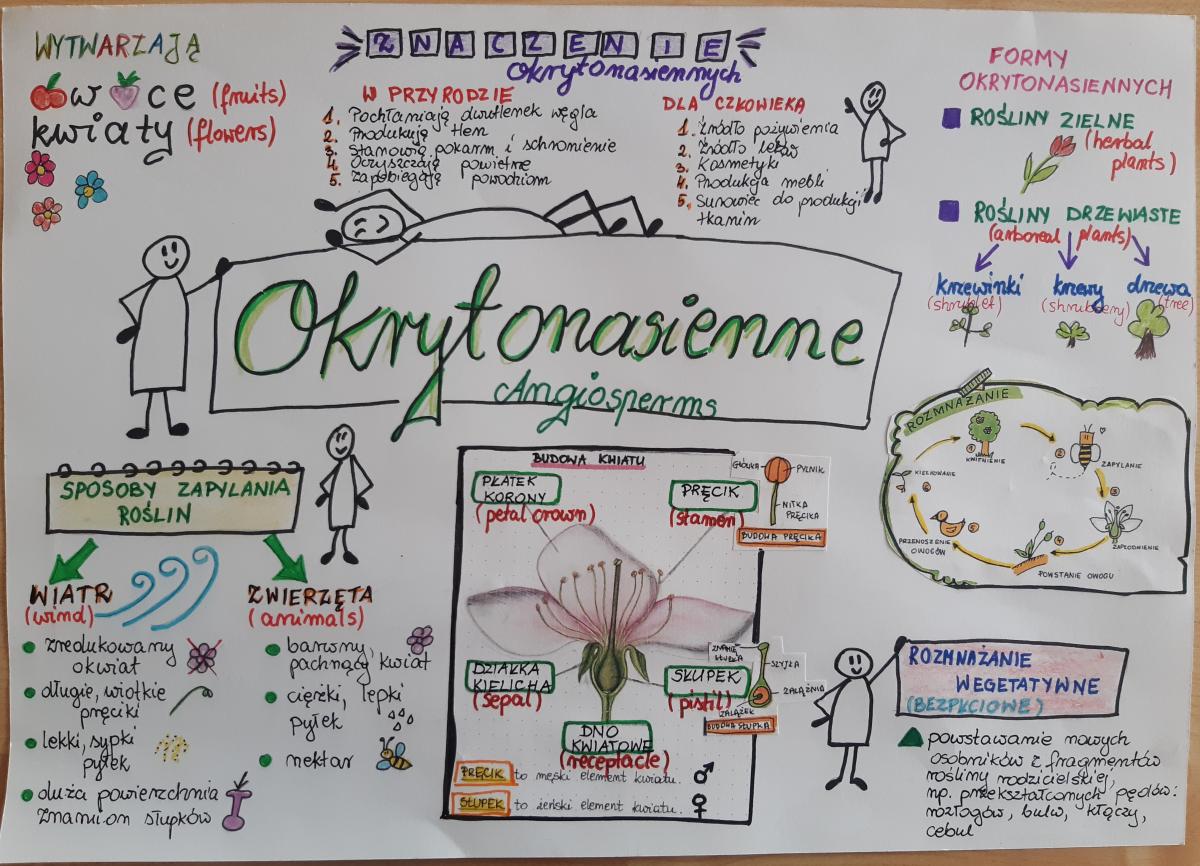 WYTWARZAJĄ
OWOCE (fruits)
kwiaty (flowers)
ZNACZENIE
Okrytonasiennych
W PRZYRODZIE
1. Pochłaniają dwutlenek węgla
2. Produkują tlen
3. Stanowią pokarm i schronienie
4. Oczyszczają powietrze
5. Zapobiegają powodziom
DLA CZŁOWIEKA
1. Źródło pożywienia
2. Źródło leków
3. Kosmetyki
4. Produkcja mebli
5. Surowiec do produkcji
tkanin
FORMY
OKRYTONASIENNYCH
ROŚLINY ZIELNE
(herbal
plants)
ROŚLINY DRZEWIASTE
(arboreal plants)
krzewinki
(shrublet)
krzewy
(shrubbery)
drzewa
(tree)
Okrytonasienne
Angiosperms
ROZMNAŻANIE
1 KWITNIENIE
2 ZAPYLANIE
3 ZAPŁODNIENIE
4 POWSTANIE OWOCU
5 PRZENOSZENIE
OWOCÓW
6 KIEŁKOWANIE
SPOSOBY ZAPYLANIA
ROŚLIN
WIATR
(wind)
zredukowany
okwiat
długie, wiotkie
pręciki
lekki, sypki
pyłek
duża powierzchnia
znamion słupków
ZWIERZĘTA
(animals)
barwny,
pachnący kwiat
ciężki, lepki
pyłek
nektar
BUDOWA KWIATU
PŁATEK
KORONY
(petal crown)
PRĘCIK
(stamen)
GŁÓWKA
PYLNIK
NITKA
PRĘCIKA
BUDOWA PRĘCIKA
DZIAŁKA
KIELICHA
(sepal)
SŁUPEK
(pistil)
ZNAMIĘ
SŁUPKA
SZYJKA
ZALĄŻNIA
ZALĄŻEK
BUDOWA SŁUPKA
DNO
KWIATOWE
(receptacle)
PRĘCIK to męski element kwiatu. ♂
SŁUPEK to żeński element kwiatu. ♀
ROZMNAŻANIE
WEGETATYWNE
(BEZPŁCIOWE)
powstawanie nowych
osobników z fragmentów
rośliny rodzicielskiej,
np. przekształconych pędów:
rozłogów, bulw, kłączy,
cebul